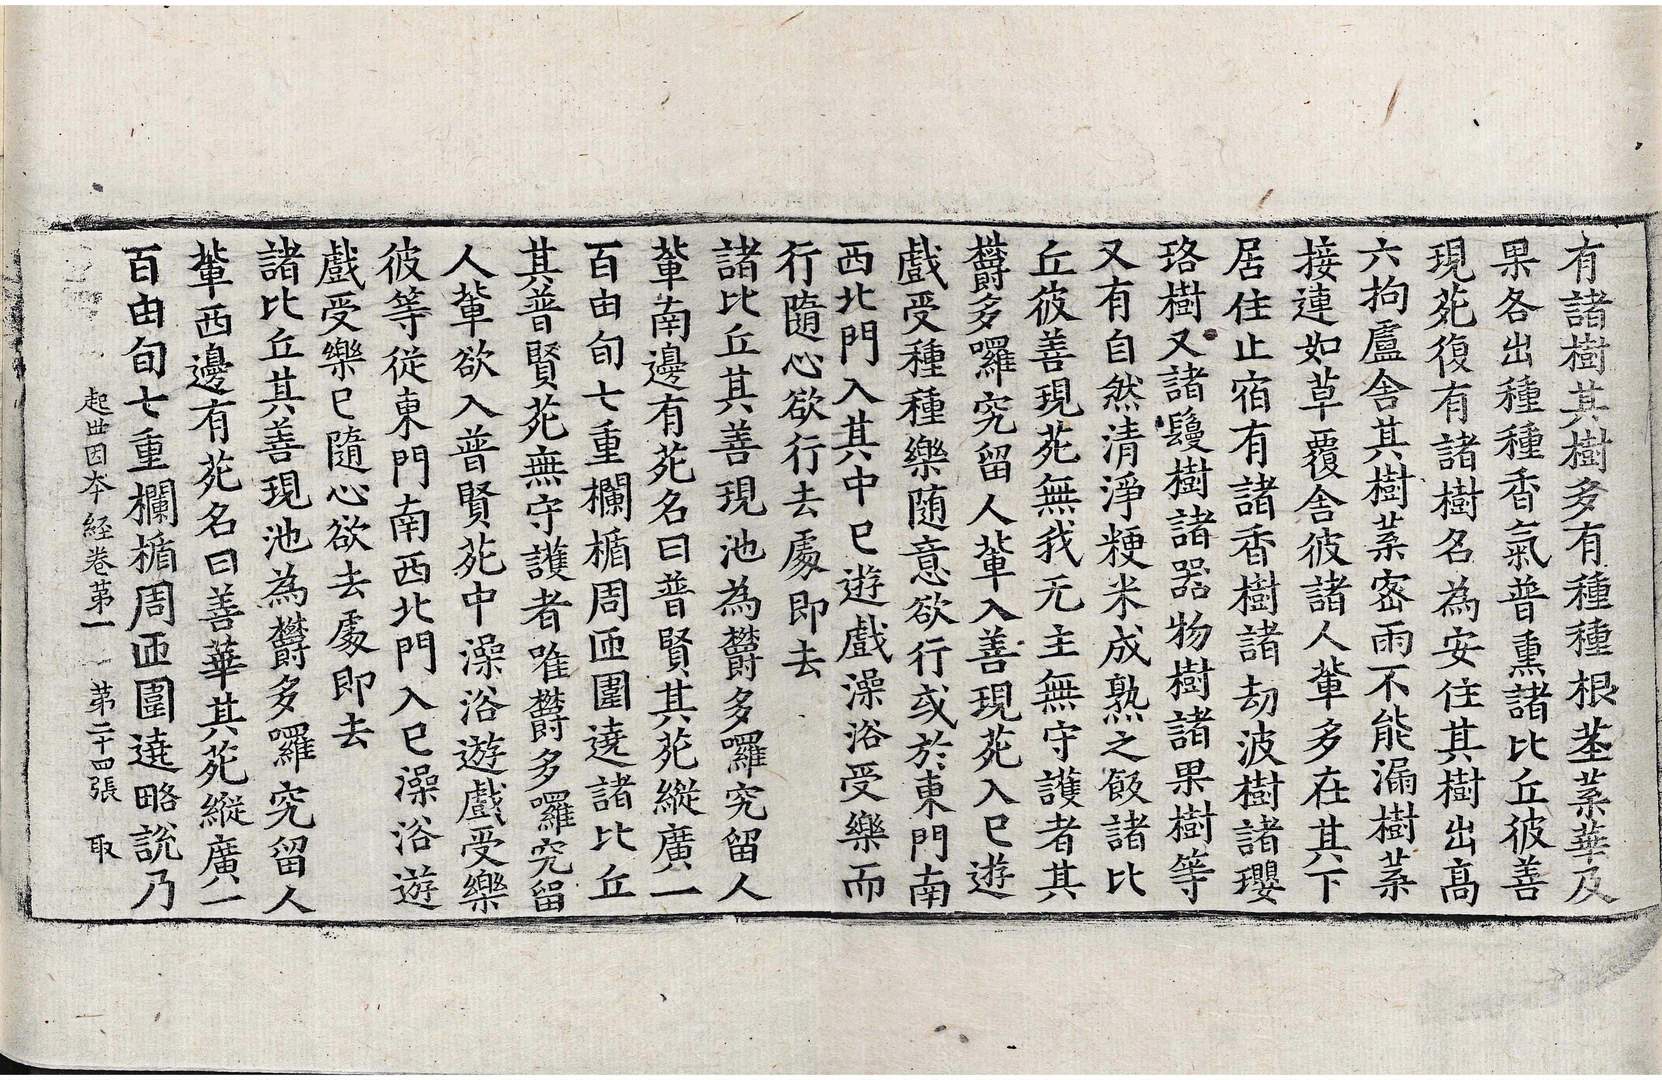 有諸樹其樹多有種種根莖葉華及
果各出種種香氣普熏諸比丘彼善
現苑復有諸樹名為安住其樹出高
六拘盧舍其樹葉密雨不能漏樹葉
接連如草覆舍彼諸人輩多在其下
居住止宿有諸香樹諸劫波樹諸瓔
珞樹又諸鬘樹諸器物樹諸果樹等
又有自然清淨粳米成熟之飯諸比
丘彼善現苑無我无主無守護者其
欝多囉究留人輩入善現苑入已遊
戲受種種樂随意欲行或於東門南
西北門入其中已遊戲澡浴受樂而
行隨心欲行去處即去
諸比丘其善現池為欝多囉究留人
輩南邊有苑名曰普賢其苑縱廣一
百由旬七重欄楯周匝圍遶諸比丘
其普賢苑無守護者唯欝多囉究留
人輩欲入普賢苑中澡浴遊戲受樂
彼等從東門南西北門入已澡浴遊
戲受樂已隨心欲去處即去
諸比丘其善現池為欝多囉究留人
輩西邊有苑名曰善華其苑縱廣一
百由旬七重欄楯周匝圍遶略說乃
起世因本經卷第一 第二十四張 取